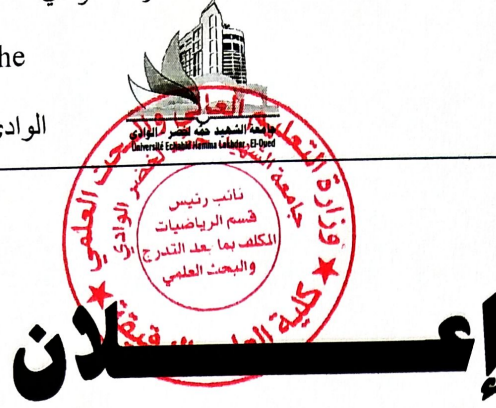 he
الوادي
جامعة الشهيد حمه لخضر - الوادي
Université Echahid Hamma Lakhdar - El-Oued
وزارة التعليم العالي والبحث العلمي
جامعة الشهيد حمه لخضر الوادي
نائب رئيس
قسم الرياضيات
المكلف بما بعد التدرج
والبحث العلمي
كلية العلوم الدقيقة
إعلان